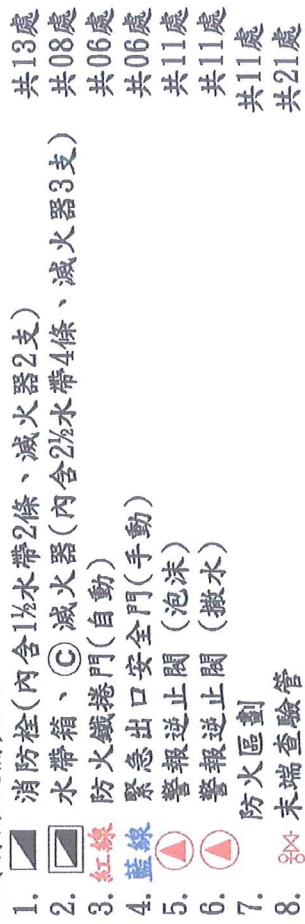 1. 消防栓(內含1½水帶2條、滅火器2支) 共13處
2. 水帶箱、Ⓒ滅火器(內含2½水帶4條、滅火器3支) 共08處
3. 紅線 防火鐵捲門(自動) 共06處
4. 藍線 緊急出口安全門(手動) 共06處
5. 警報逆止閥 (泡沫) 共11處
6. 警報逆止閥 (撒水) 共11處
7. 防火區劃 共11處
8. 末端查驗管 共21處